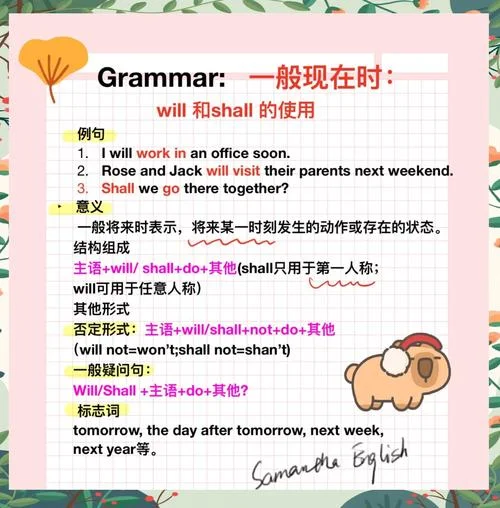 Grammar: 一般现在时：
will 和shall 的使用
例句
1. I will work in an office soon.
2. Rose and Jack will visit their parents next weekend.
3. Shall we go there together?
意义
一般将来时表示，将来某一时刻发生的动作或存在的状态。
结构组成
主语+will/ shall+do+其他(shall只用于第一人称；
will可用于任意人称）
其他形式
否定形式：主语+will/shall+not+do+其他
（will not=won't;shall not=shan't)
一般疑问句：
Will/Shall +主语+do+其他?
标志词
tomorrow, the day after tomorrow, next week,
next year等。
Samantha English